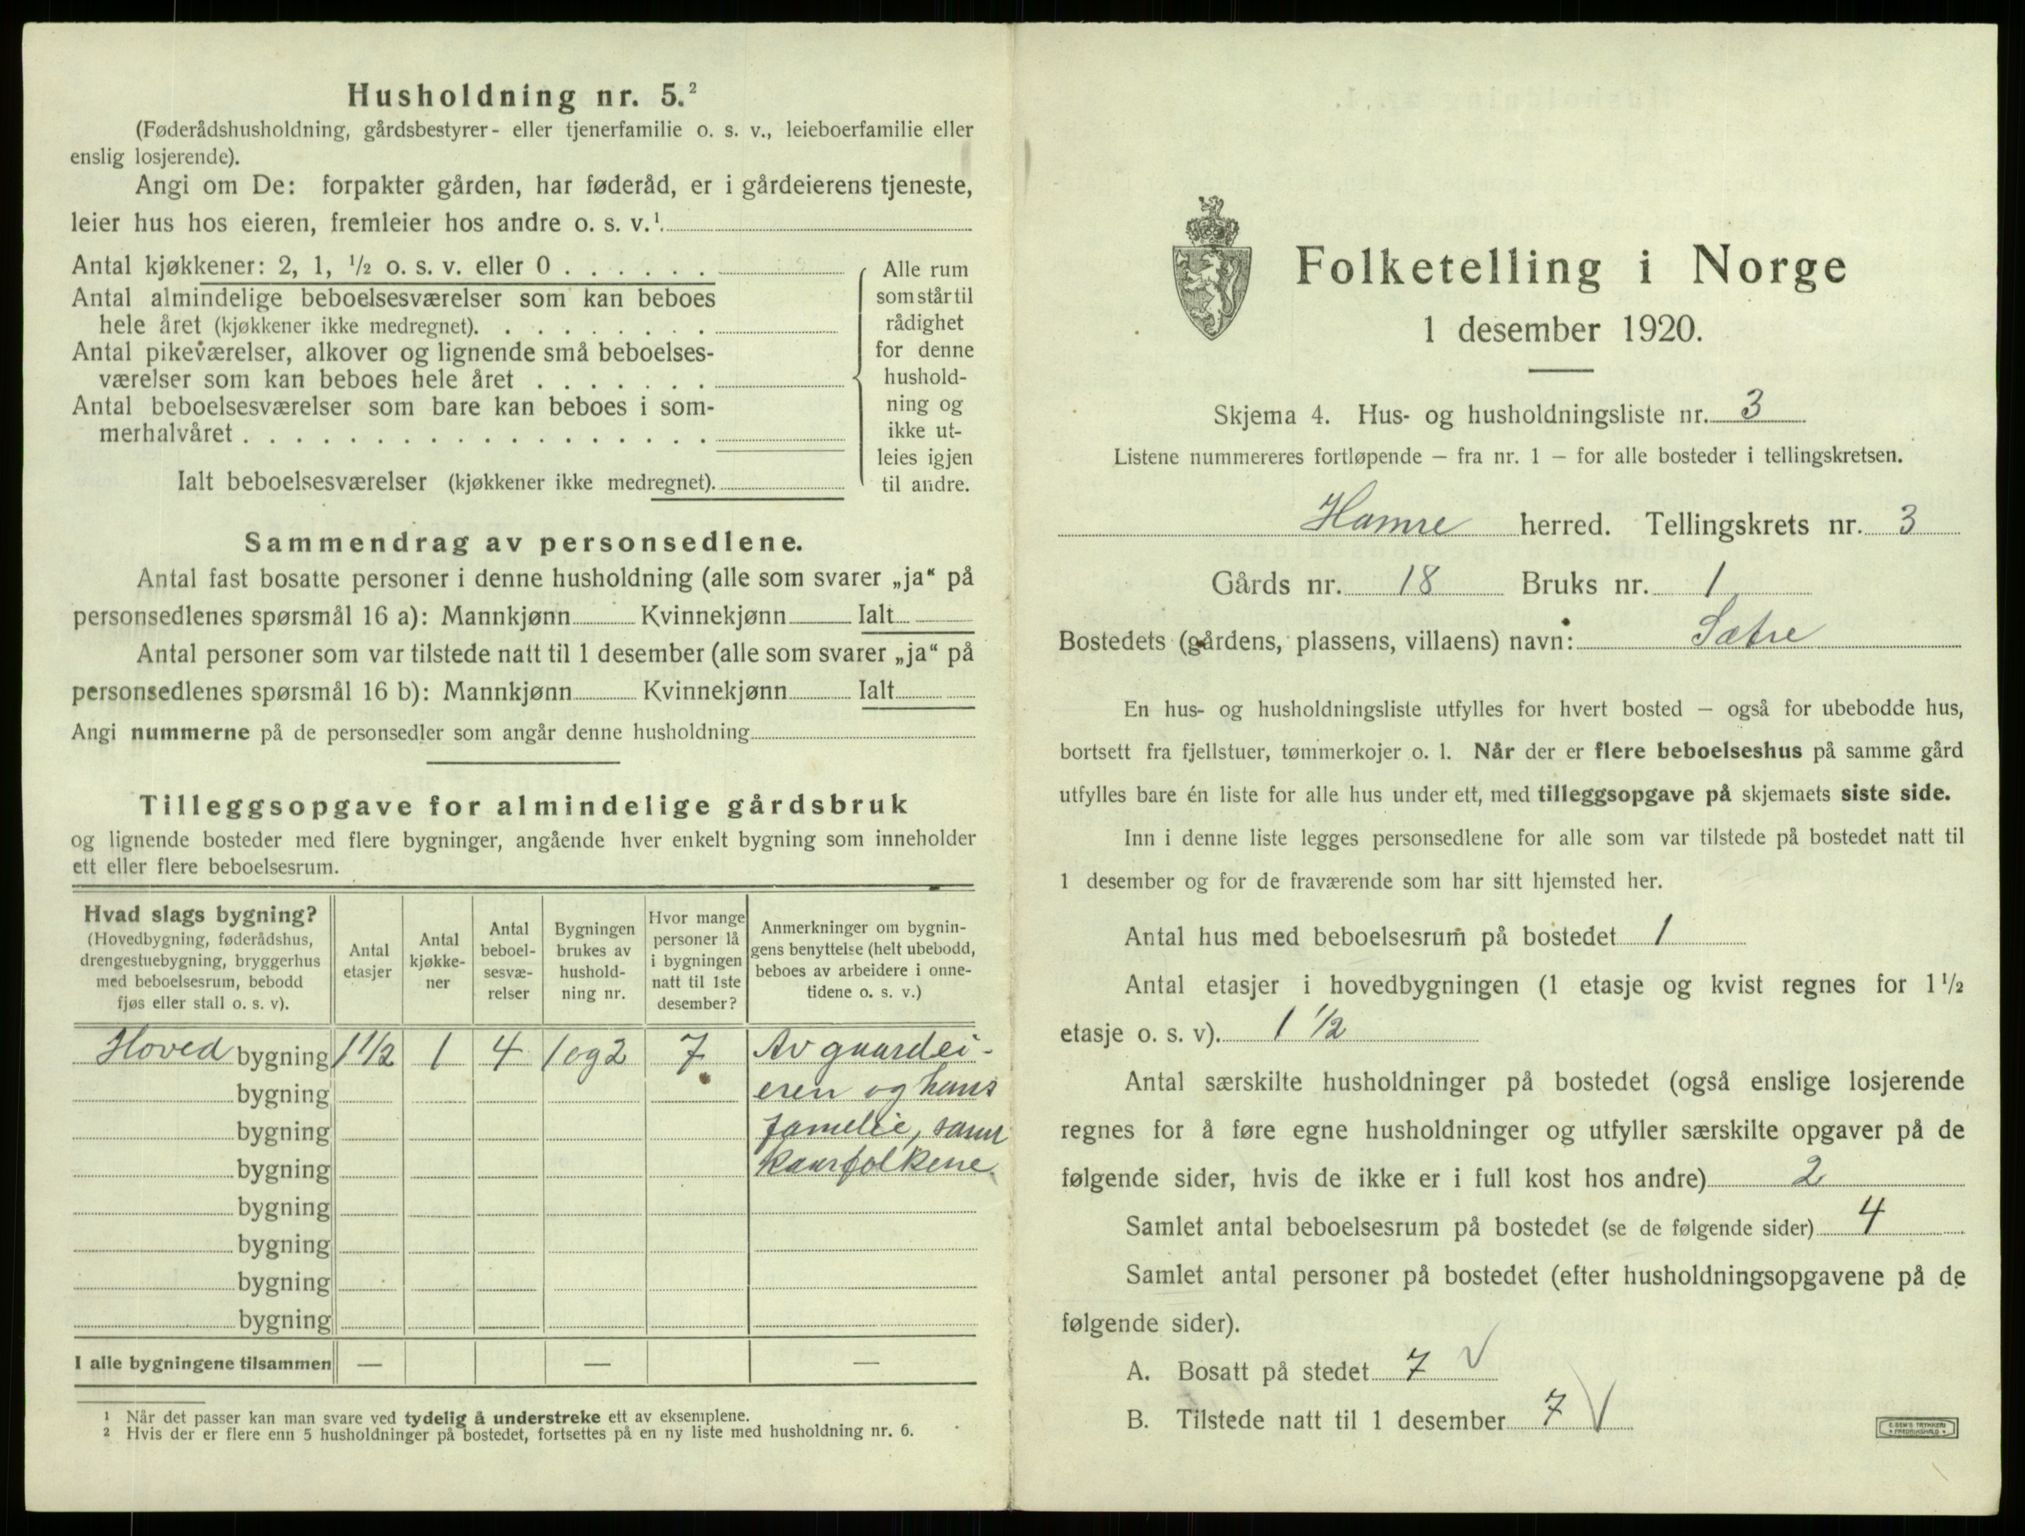 Husholdning nr. 5.²
(Føderådshusholdning, gårdsbestyrer- eller tjenerfamilie o. s. v., leieboerfamilie eller
enslig losjerende).
Angi om De: forpakter gården, har føderåd, er i gårdeierens tjeneste,
leier hus hos eieren, fremleier hos andre o. s. v.¹
Antal kjøkkener: 2, 1, ½ o. s. v. eller 0
Antal almindelige beboelsesværelser som kan beboes
hele året (kjøkkener ikke medregnet).
Antal pikeværelser, alkover og lignende små beboelses-
værelser som kan beboes hele året
Antal beboelsesværelser som bare kan beboes i som-
merhalvåret
Ialt beboelsesværelser (kjøkkener ikke medregnet).
Alle rum
som står til
rådighet
for denne
hushold-
ning og
ikke ut-
leies igjen
til andre.
Sammendrag av personsedlene.
Antal fast bosatte personer i denne husholdning (alle som svarer „ja“ på
personsedlenes spørsmål 16 a): Mannkjønn Kvinnekjønn Ialt
Antal personer som var tilstede natt til 1 desember (alle som svarer „ja“ på
personsedlenes spørsmål 16 b): Mannkjønn Kvinnekjønn Ialt
Angi nummerne på de personsedler som angår denne husholdning
Tilleggsopgave for almindelige gårdsbruk
og lignende bosteder med flere bygninger, angående hver enkelt bygning som inneholder
ett eller flere beboelsesrum.
Hvad slags bygning?
(Hovedbygning, føderådshus,
drengestuebygning, bryggerhus
med beboelsesrum, bebodd
fjøs eller stall o. s. v).
Antal
etasjer
Antal
kjøkke-
ner
Antal
beboel-
sesvæ-
relser
Bygningen
brukes av
hushold-
ning nr.
Hvor mange
personer lå
i bygningen
natt til 1ste
desember?
Anmerkninger om bygnin-
gens benyttelse (helt ubebodd,
beboes av arbeidere i onne-
tidene o. s. v.)
Hoved bygning 1 1/2 1 4 1 og 2 7 Av gaardei-
bygning eren og hans
bygning familie, samt
bygning kaarfolkene
bygning
bygning
bygning
bygning
I alle bygningene tilsammen — — —
¹ Når det passer kan man svare ved tydelig å understreke ett av eksemplene.
² Hvis der er flere enn 5 husholdninger på bostedet, fortsettes på en ny liste med husholdning nr. 6.
Folketelling i Norge
1 desember 1920.
Skjema 4. Hus- og husholdningsliste nr. 3
Listene nummereres fortløpende – fra nr. 1 – for alle bosteder i tellingskretsen.
Hamre herred. Tellingskrets nr. 3
Gårds nr. 18 Bruks nr. 1
Bostedets (gårdens, plassens, villaens) navn: Sætre
En hus- og husholdningsliste utfylles for hvert bosted – også for ubebodde hus,
bortsett fra fjellstuer, tømmerkojer o. l. Når der er flere beboelseshus på samme gård
utfylles bare én liste for alle hus under ett, med tilleggsopgave på skjemaets siste side.
Inn i denne liste legges personsedlene for alle som var tilstede på bostedet natt til
1 desember og for de fraværende som har sitt hjemsted her.
Antal hus med beboelsesrum på bostedet 1
Antal etasjer i hovedbygningen (1 etasje og kvist regnes for 1½
etasje o. s. v). 1 1/2
Antal særskilte husholdninger på bostedet (også enslige losjerende
regnes for å føre egne husholdninger og utfyller særskilte opgaver på de
følgende sider, hvis de ikke er i full kost hos andre) 2
Samlet antal beboelsesrum på bostedet (se de følgende sider) 4
Samlet antal personer på bostedet (efter husholdningsopgavene på de
følgende sider).
A. Bosatt på stedet 7 √
B. Tilstede natt til 1 desember 7 √
E. SEM'S TRYKKERI
• FREDRIKSHALD •